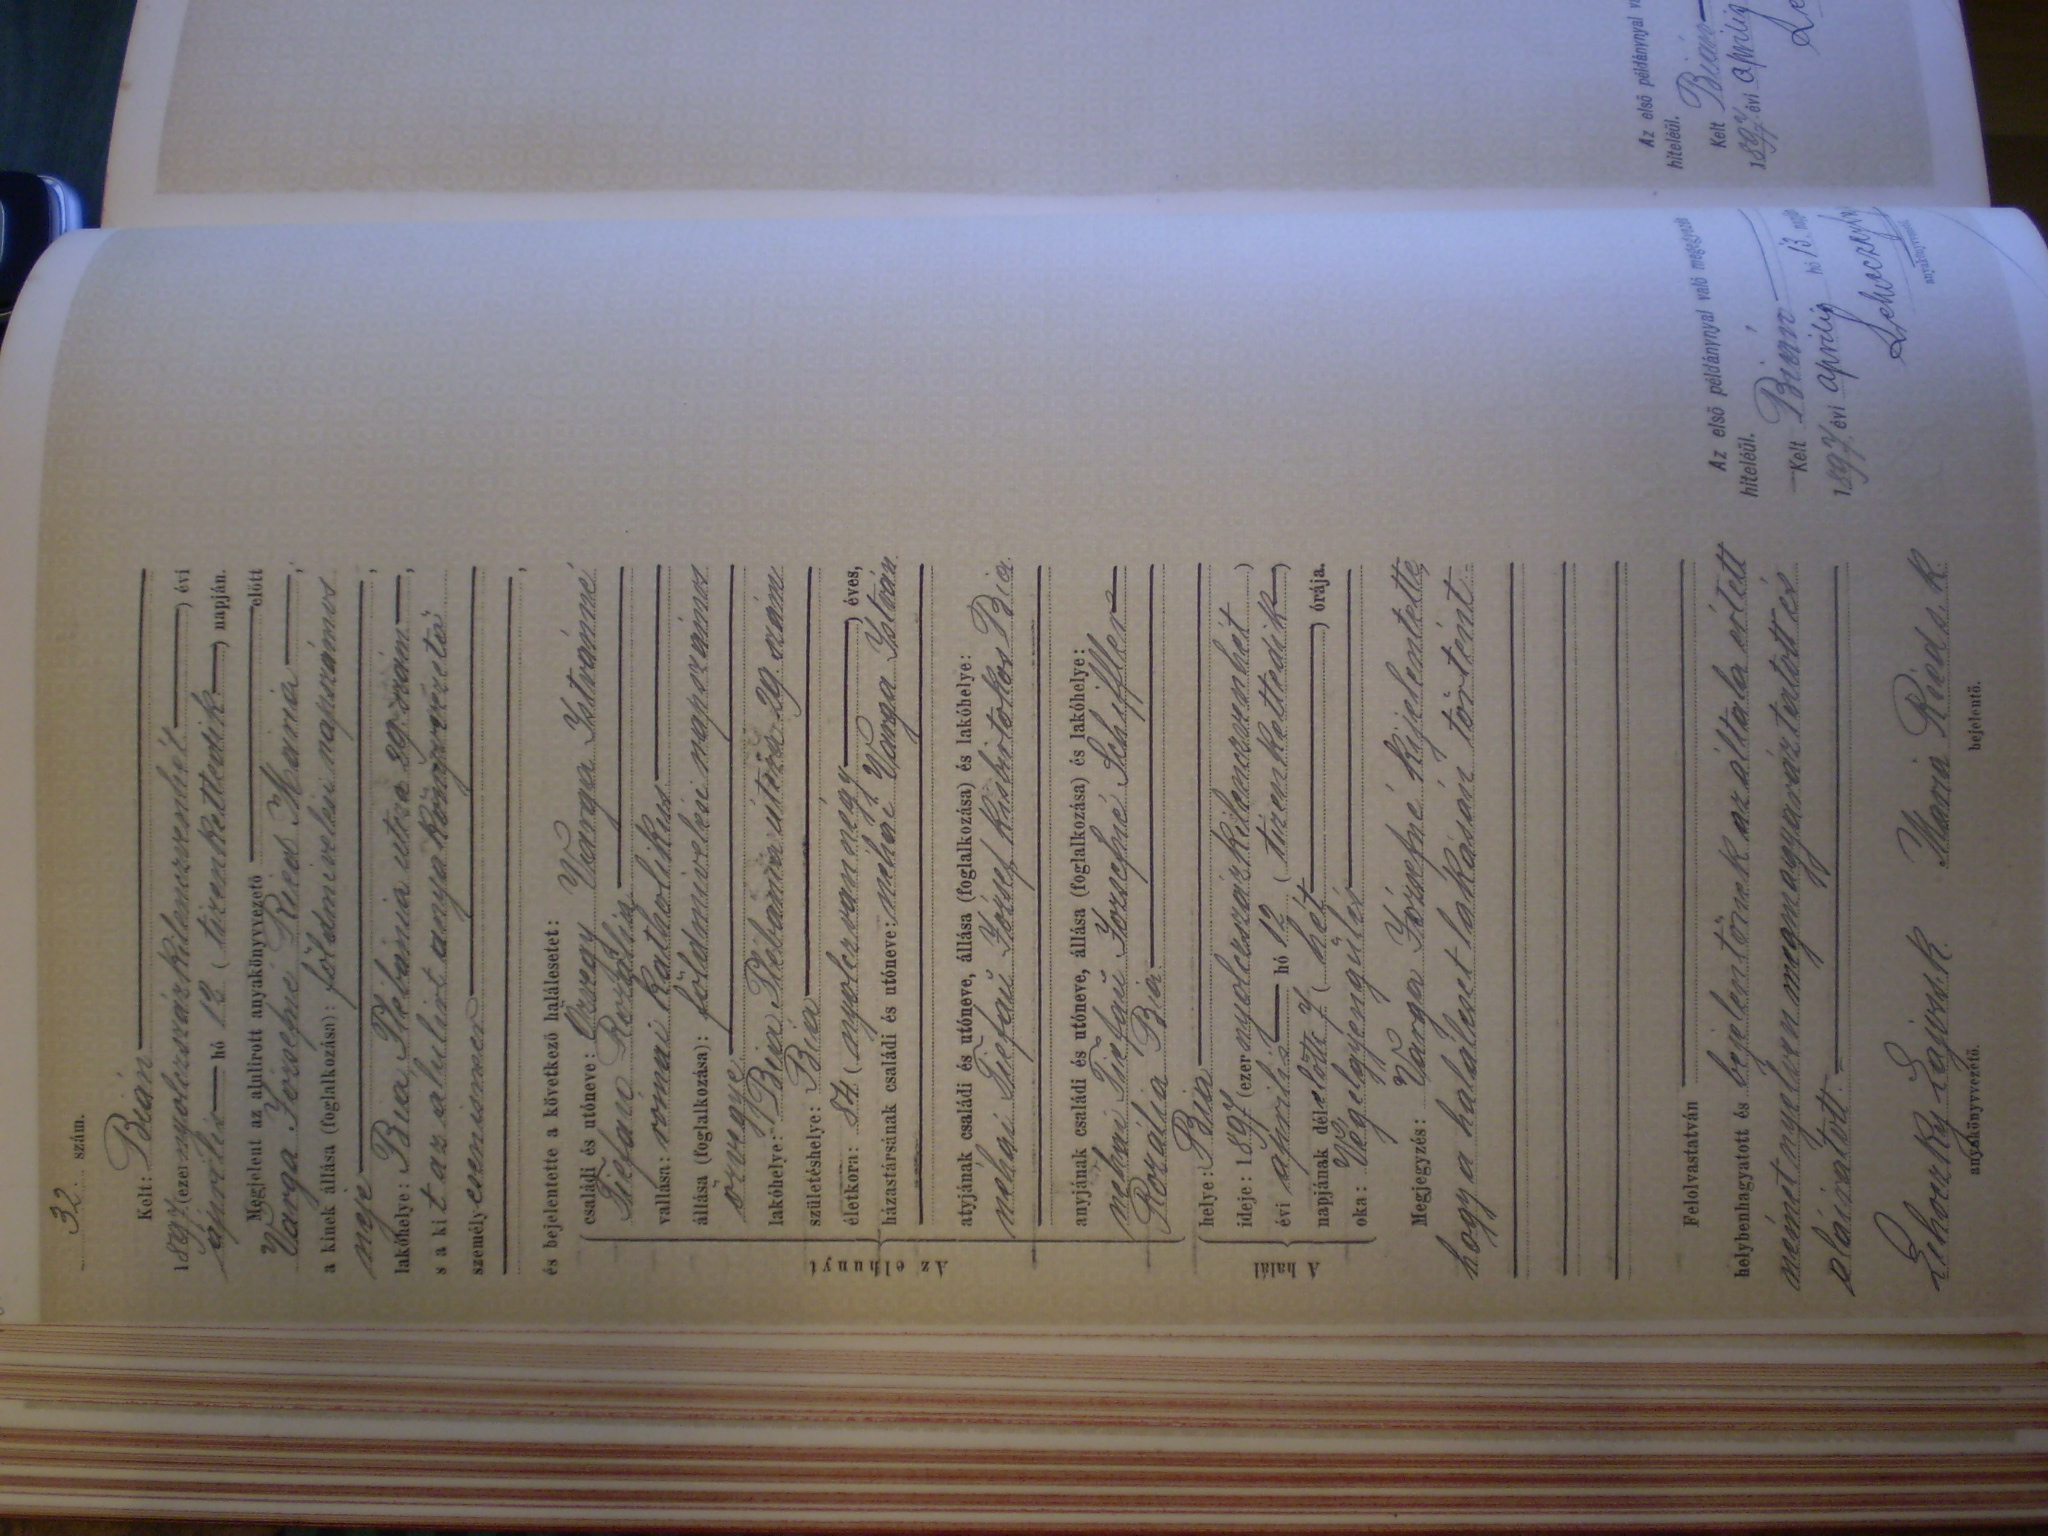 32. szám.
Kelt: Bián
1897 (ezernyolczszázkilenczvenhét) évi
április hó 12 (tizenkettedik) napján.
Megjelent az alulirott anyakönyvezető előtt
Varga Józsefné Ried Mária;
a kinek állása (foglalkozása): földmivelési napszámos
neje,
lakóhelye: Bia Plébánia utsa 29. szám,
s a kit az alulirt anyakönyvvezető
személyesen ismer,
és bejelentette a következő halálesetet:
családi és utóneve: Özvegy Varga Istvánné
Tiefau Rozália
vallása: római katholikus
állása (foglalkozása): földmivelési napszámos
özvegye
lakóhelye: Bia Plébánia utsa 29. szám
születéshelye: Bia
életkora: 84 (nyolczvannégy) éves,
házastársának családi és utóneve: néhai Varga István
Az elhunyt
atyjának családi és utóneve, állása (foglalkozása) és lakóhelye:
néhai Tiefau József kisbirtokos Bia
anyjának családi és utóneve, állása (foglalkozása) és lakóhelye:
néhai Tiefau Józsefné Schiffler
Rozália Bia
A halál
helye: Bia
ideje: 1897 (ezernyolczszázkilenczvenhét)
évi április hó 12 (tizenkettedik)
napjának délelőtti 7 (hét) órája.
oka: Végelgyengülés
Megjegyzés: Varga Józsefné kijelentette,
hogy a haláleset lakásán történt.
Felolvastatván
helybenhagyatott és bejelentőnek az általa értett
német nyelven megmagyaráztatott és
aláiratott.
Lehoczky Lajos s.k.
anyakönyvezető.
Maria Ried s.k.
bejelentő.
Az első példánynyal való megegyezés
hiteléül.
Kelt Bián
1897. évi április hó 13. napján
Lehoczky
anyakönyvvezető.
Az első példánynyal
hiteléül.
Kelt Bián
1897. évi április